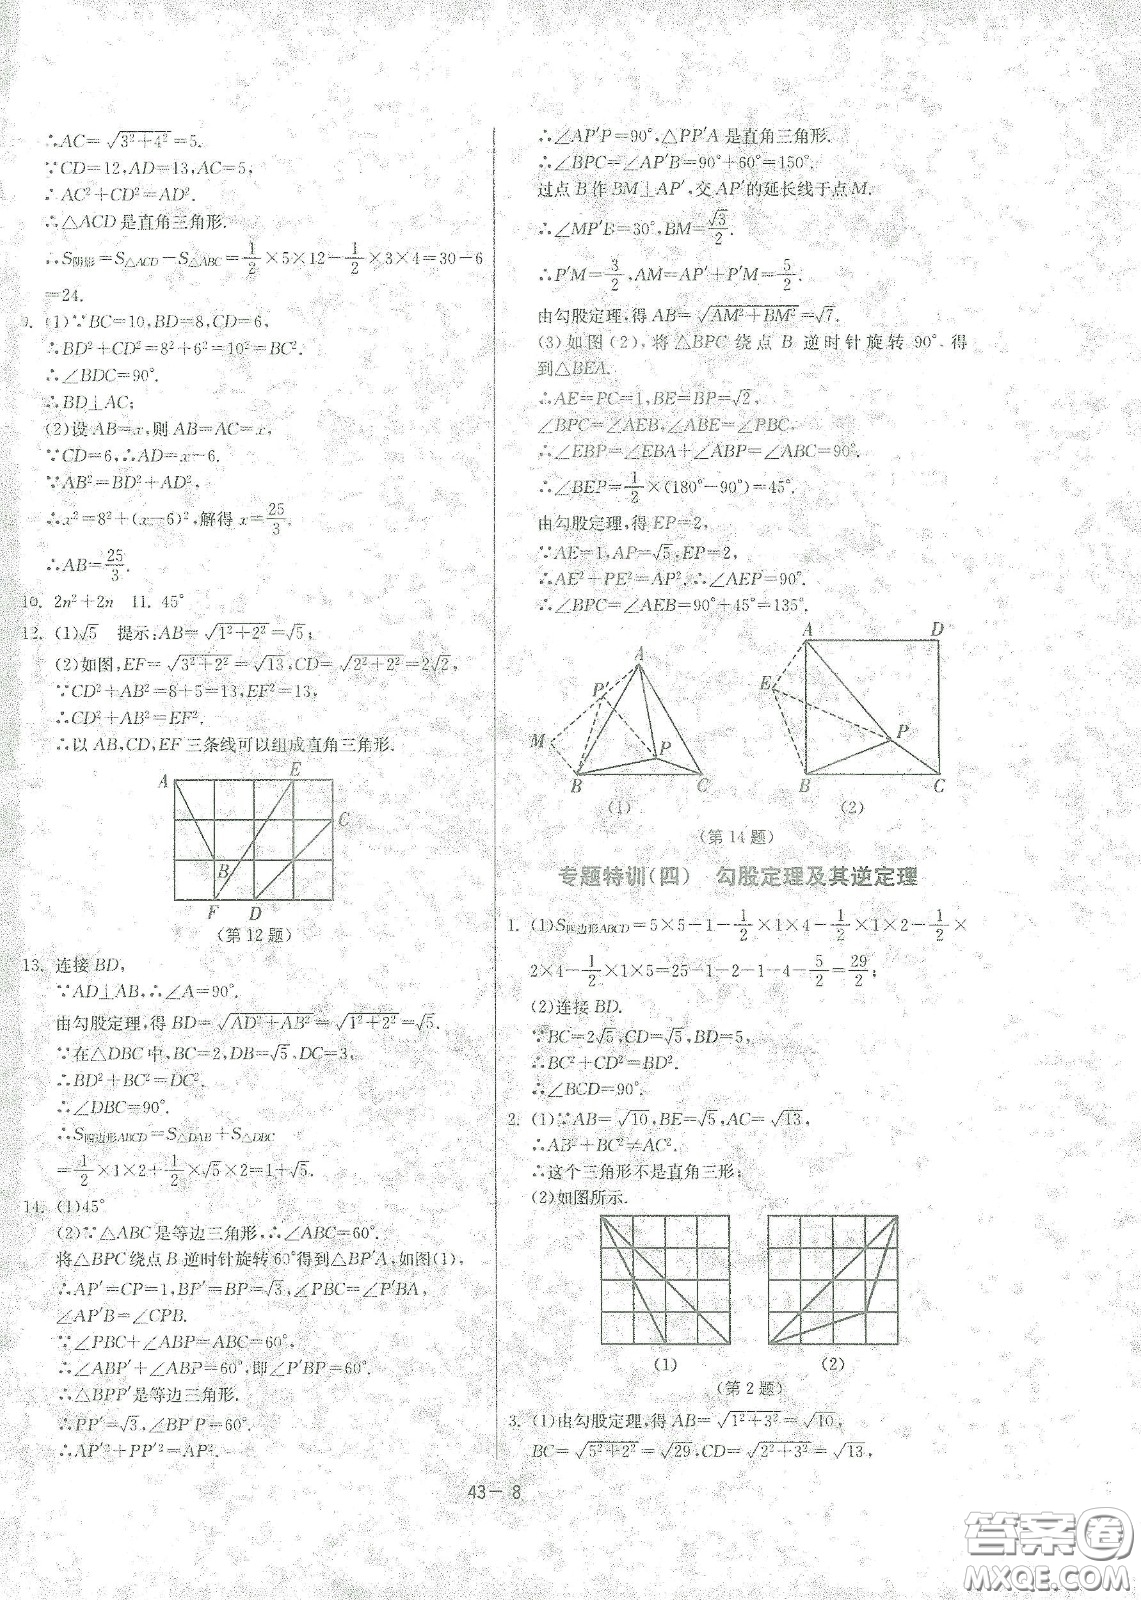 ∴AC=√(3²+4²)=5.
∵CD=12,AD=13,AC=5,
∴AC²+CD²=AD².
∴△ACD是直角三角形.
∴S阴影=S△ACD-S△ABC=1/2×5×12-1/2×3×4=30-6
=24.
9. (1)∵BC=10,BD=8,CD=6,
∴BD²+CD²=8²+6²=10²=BC².
∴∠BDC=90°.
∴BD⊥AC;
(2)设AB=x,则AB=AC=x,
∵CD=6,∴AD=x-6.
∵AB²=BD²+AD²,
∴x²=8²+(x-6)²,解得x=25/3.
∴AB=25/3.
10. 2n²+2n 11. 45°
12. (1)√5 提示:AB=√(1²+2²)=√5;
(2)如图,EF=√(3²+2²)=√13,CD=√(2²+2²)=2√2,
∵CD²+AB²=8+5=13,EF²=13,
∴CD²+AB²=EF².
∴以AB,CD,EF三条线可以组成直角三角形.
A E
C
B
F D
(第12题)
13. 连接BD,
∵AD⊥AB,∴∠A=90°.
由勾股定理,得BD=√(AD²+AB²)=√(1²+2²)=√5.
∵在△DBC中,BC=2,DB=√5,DC=3,
∴BD²+BC²=DC².
∴∠DBC=90°.
∴S四边形ABCD=S△DAB+S△DBC
=1/2×1×2+1/2×√5×2=1+√5.
14. (1)45°
(2)∵△ABC是等边三角形,∴∠ABC=60°.
将△BPC绕点B逆时针旋转60°得到△BP′A,如图(1),
∴AP′=CP=1,BP′=BP=√3,∠PBC=∠P′BA,
∠AP′B=∠CPB.
∵∠PBC+∠ABP=ABC=60°,
∴∠ABP′+∠ABP=60°,即∠P′BP=60°.
∴△BPP′是等边三角形.
∴PP′=√3,∠BP′P=60°.
∴AP′²+PP′²=AP².
∴∠AP′P=90°,△PP′A是直角三角形.
∴∠BPC=∠AP′B=90°+60°=150°.
过点B作BM⊥AP′,交AP′的延长线于点M.
∴∠MP′B=30°,BM=√3/2.
∴P′M=3/2,AM=AP′+P′M=5/2.
由勾股定理,得AB=√(AM²+BM²)=√7.
(3)如图(2),将△BPC绕点B逆时针旋转90°得
到△BEA.
∴AE=PC=1,BE=BP=√2,
∠BPC=∠AEB,∠ABE=∠PBC,
∴∠EBP=∠EBA+∠ABP=∠ABC=90°.
∴∠BEP=1/2×(180°-90°)=45°.
由勾股定理,得EP=2,
∵AE=1,AP=√5,EP=2,
∴AE²+PE²=AP²,∴∠AEP=90°.
∴∠BPC=∠AEB=90°+45°=135°.
A P′ M P B C
(1)
A D E P B C
(2)
(第14题)
专题特训(四) 勾股定理及其逆定理
1. (1)S四边形ABCD=5×5-1-1/2×1×4-1/2×1×2-1/2×
2×4-1/2×1×5=25-1-2-1-4-5/2=29/2;
(2)连接BD.
∵BC=2√5,CD=√5,BD=5,
∴BC²+CD²=BD².
∴∠BCD=90°.
2. (1)∵AB=√10,BE=√5,AC=√13,
∴AB²+BC²≠AC².
∴这个三角形不是直角三形;
(2)如图所示.
(1) (2)
(第2题)
3. (1)由勾股定理,得AB=√(1²+3²)=√10,
BC=√(5²+2²)=√29,CD=√(2²+3²)=√13,
43－8
答案卷
MXQE.COM